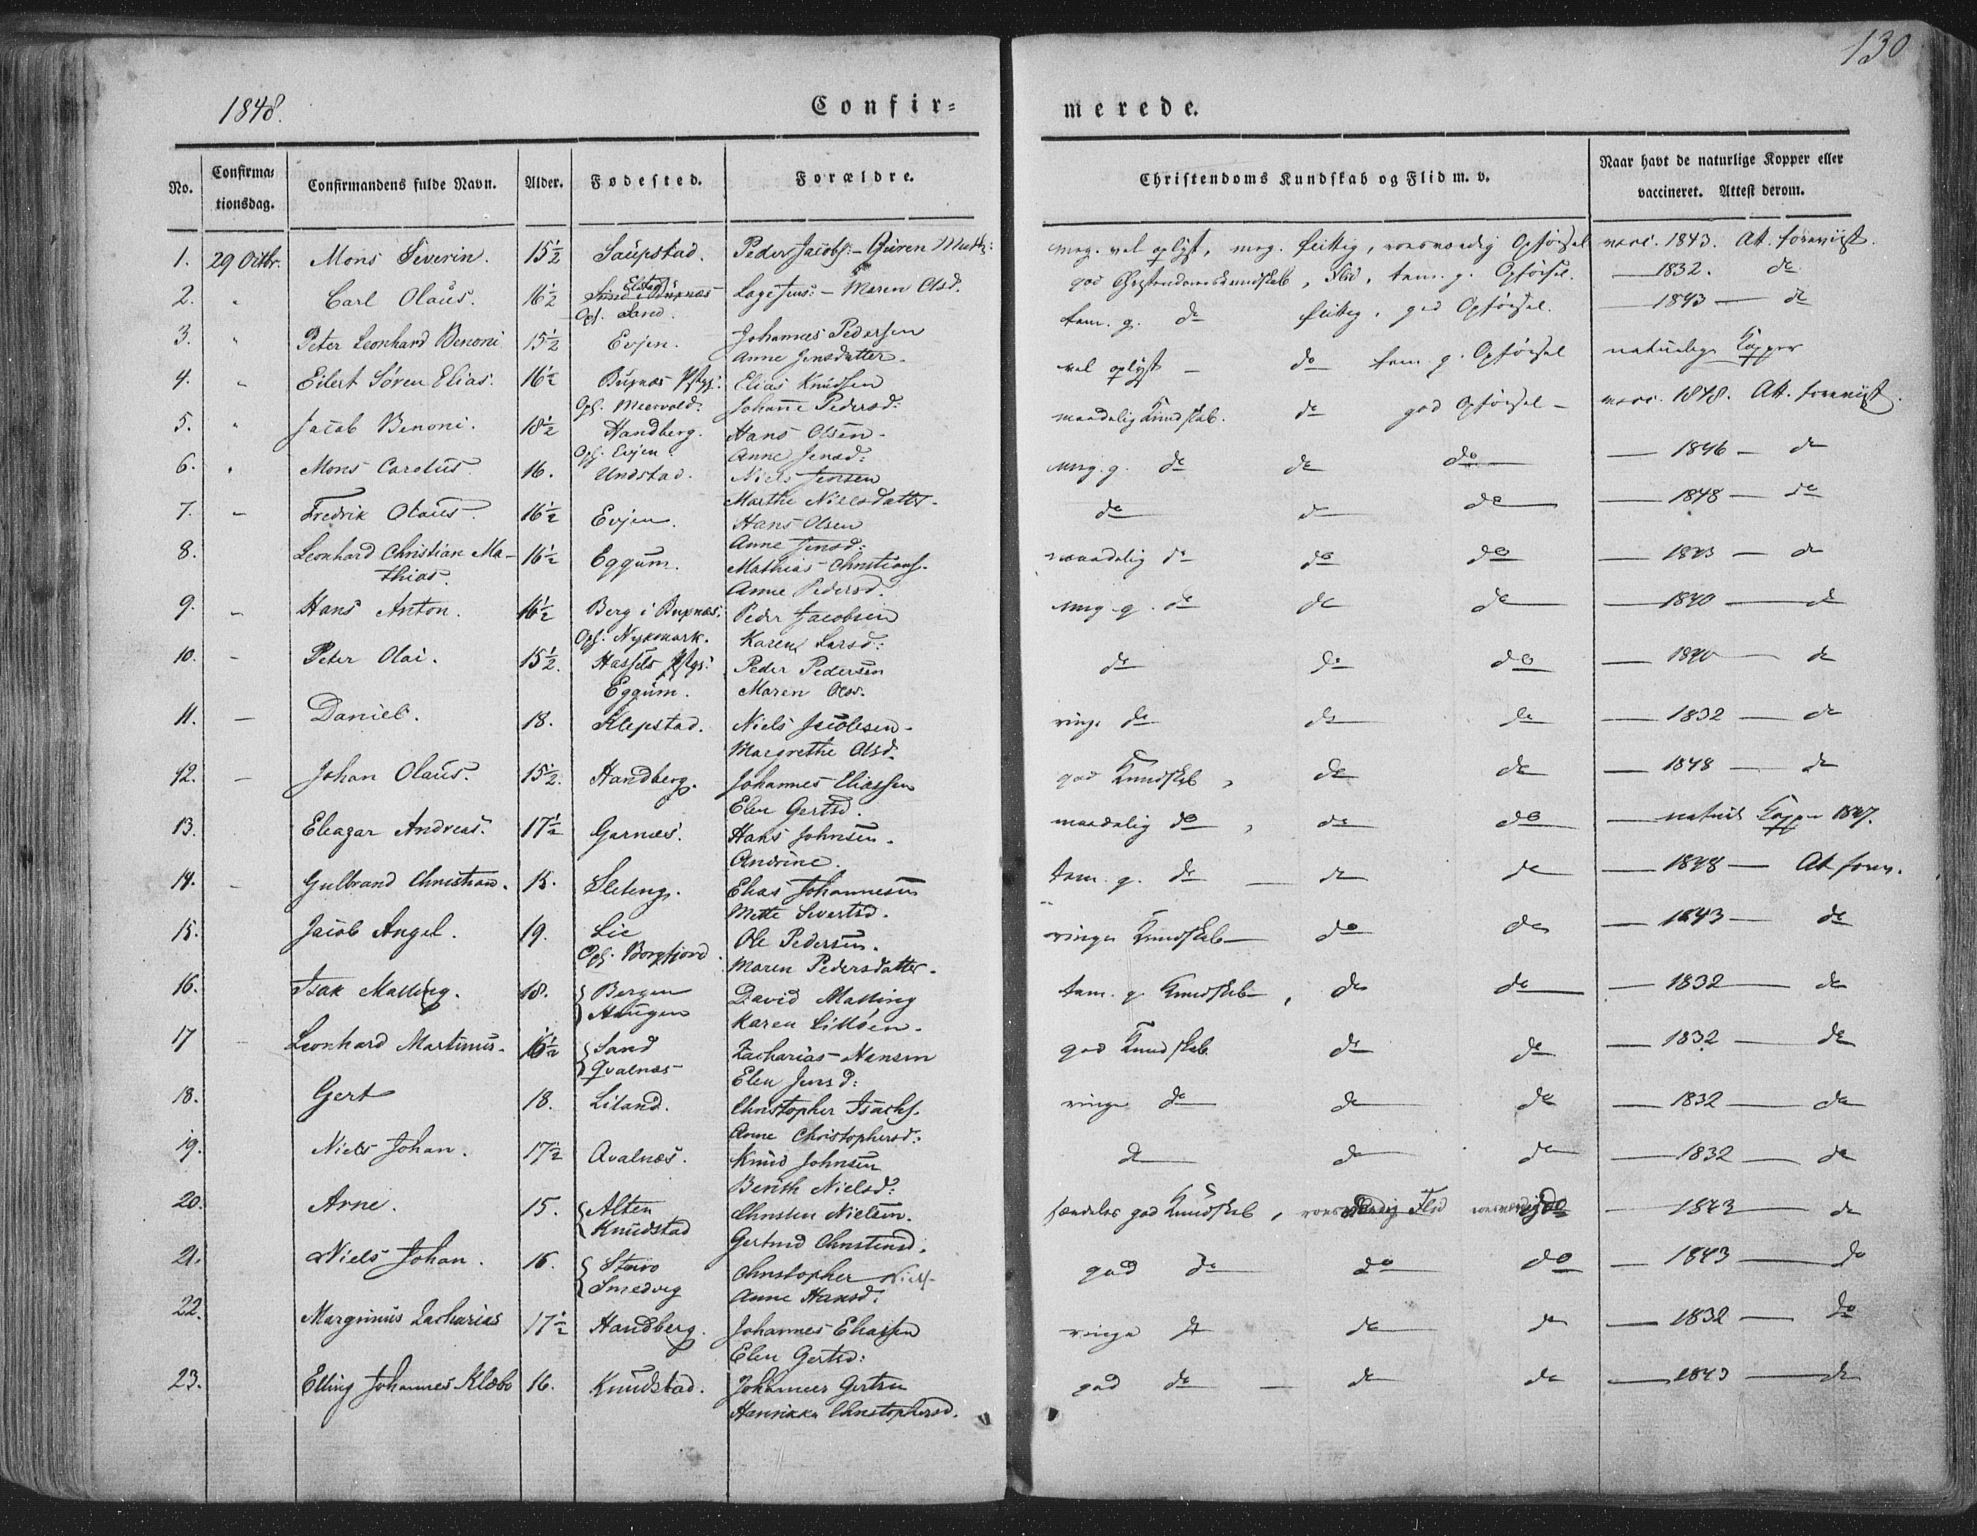 130
1848.
Confir=
merede.
No.
Confirma-
tionsdag.
Confirmandens fulde Navn.
Alder.
Fødested.
Forældre.
Christendoms Kundskab og Flid m. v.
Naar havt de naturlige Kopper eller
vaccineret. Attest derom.
1. 29 Octbr. Mons Severin. 15½ Saupstad. Peder Jacobs: - meg. vel oplyst, meg. flittig, Opførsel vacc. 1843. Att. forevist.
2. " Carl Olaus. 16½ Opf. Sand. Lage Jens: - Maren Olsd. god Christendomskundskab, Flid, tem. g. Opførsel. — 1832. do
3. " Peter Leonhard Benoni 15½ Evjen. Johannes Pedersen tem. g. do flittig, god Opførsel. — 1843 — do
Anne Jensdatter.
4. " Eilert Søren Elias. 16½ Buxnæs Pstgj: Elias Knudsen vel oplyst — do tem. g. Opførsel naturlige Kopper
Opf. Johanne Pedersd:
5. " Jacob Benoni. 18½ Handberg. Hans Olsen maadelig Kundskab. do god Opførsel — vacc. 1848. Att. forevist.
Opf. Evjen Anne Jensd:
6. " Mons Carelius 16. Undstad. Niels Jensen meg. g. do do do — 1846 — do
Marthe Nielsdatter.
7. " Fredrik Olaus. 16½ Evjen. Hans Olsen do do do — 1848 — do
Anne Jensd:
8. Leonhard Christian Ma- 16½ Eggum. Mathias Christians. maadelig do do do — 1843 — do
thias. Anne Pedersd.
9. " Hans Anton. 16½ Berg i Buxnæs. Peder Jacobsen meg. g. do do do — 1840 — do
Opf. Nykmark. Karen Larsd:
10. " Peter Olai. 15½. Hassels Pstgj: Peder Pedersen do do do — 1840 — do
Eggum. Maren Olsd.
11. — Daniel. 18. Klepstad. Niels Jacobsen. ringe do do do — 1832 — do
Margrethe Olsd.
12. — Johan Olaus. 15½. Handberg. Johannes Eliassen god Kundskab, do do — 1848 — do
Elen Gertsd.
13. Eleazar Andreas. 17½ Garnæs. Hans Johnsen. maadelig do, do do — naturl Kopper 1847.
Andrine.
14. " Gulbrand Christian. 15. Sleteng. Elias Johannesen tem. g. do — do do — 1848 — At forev.
Mette Sivertsd.
15. Jacob Angel. 19. Lie Ole Pedersen. ringe Kundskab — do do — 1843 — do
Opf. Borgfjord. Maren Pedersdatter.
16. Isak Malling. 18. Bergen David Malling tem. g. Kundskab, do do — 1832 — do
Haugen Karen
17 Leonhard Martinus. 16½ Sand Zacharias Hansen god Kundskab do do — 1832 — do
Qvalnæs Elen Jensd:
18. Gert 18. Liland. Christopher Isachs. ringe do do do — 1832 — do
Anne Christophersd:
19. Niels Johan. 17½ Qvalnæs. Knud Johnsen do do do — 1832 — do
Berith Nielsd:
20. Arne. 15. Alten Christen Nielsen. særdeles god Kundskab, Flid — 1843 — do
Knudstad Gertrud Christensd.
21. Niels Johan. 16. Steiro Christopher Niels god do do do — 1843 — do
Smedvig Anne Hansd:
22. Zacharias 17½ Handberg. Johannes Eliassen ringe do do do — 1832 — do
Elen Gertsd:
23. Elling Johannes Klæbo 16. Knudstad. Johannes Gertsen god do — do do — 1843 — do
Henrikka Christophersd.